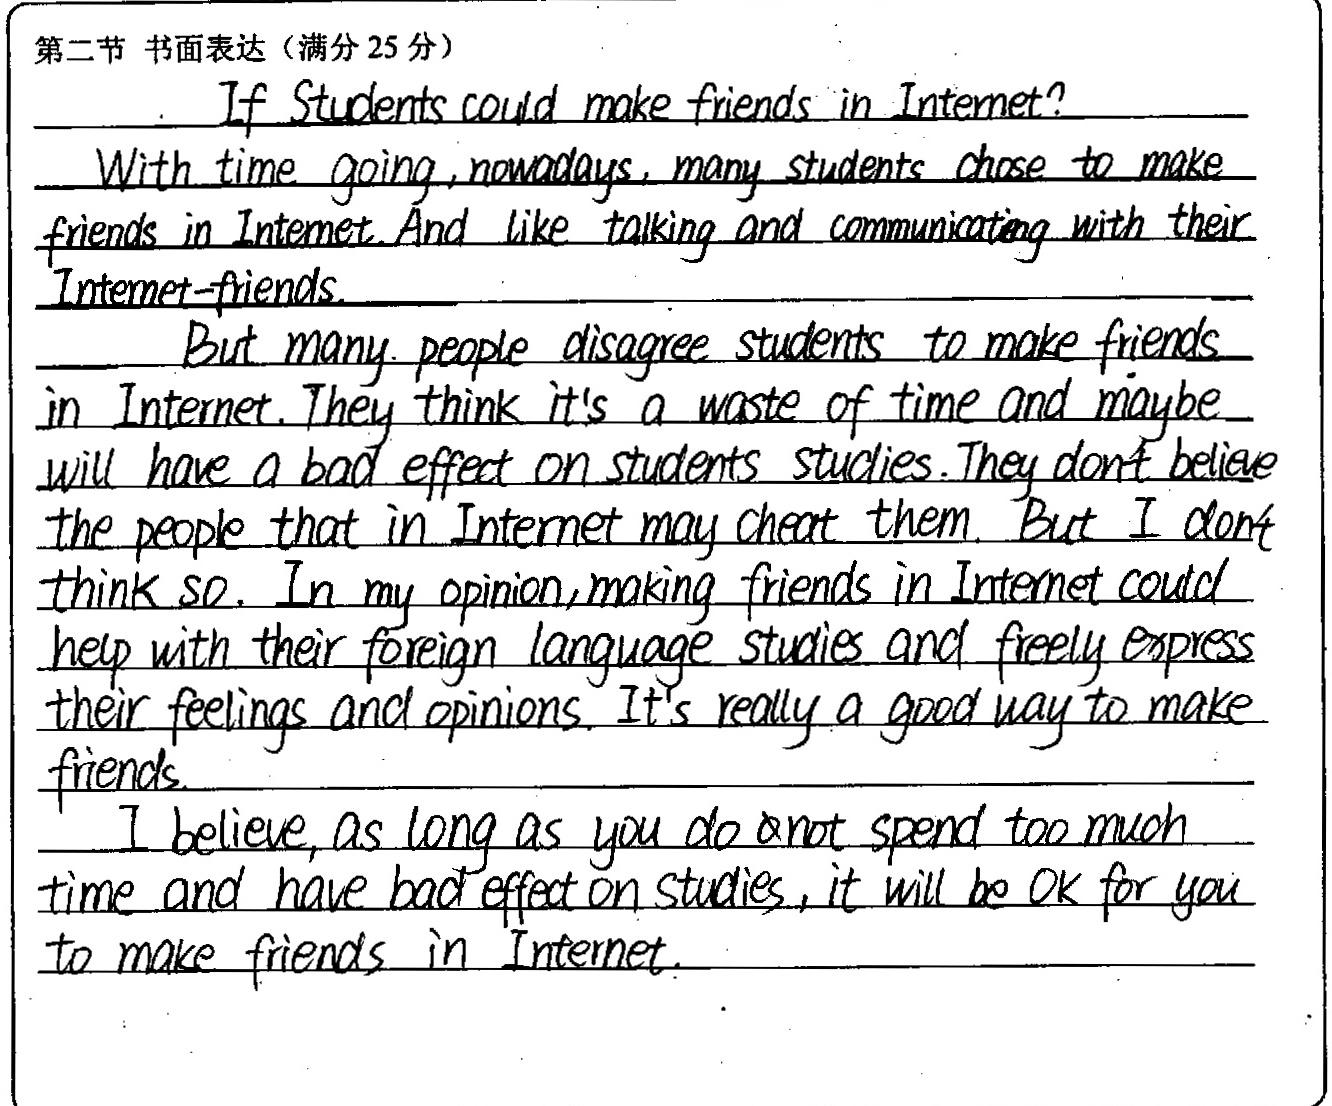 第二节 书面表达（满分 25 分）
If Students could make friends in Internet?
With time going, nowadays, many students chose to make
friends in Internet. And like talking and communicating with their
Internet-friends.
But many people disagree students to make friends
in Internet. They think it's a waste of time and maybe
will have a bad effect on students studies. They don't believe
the people that in Internet may cheat them. But I don't
think so. In my opinion, making friends in Internet could
help with their foreign language studies and freely express
their feelings and opinions. It's really a good way to make
friends.
I believe, as long as you do not spend too much
time and have bad effect on studies, it will be OK for you
to make friends in Internet.